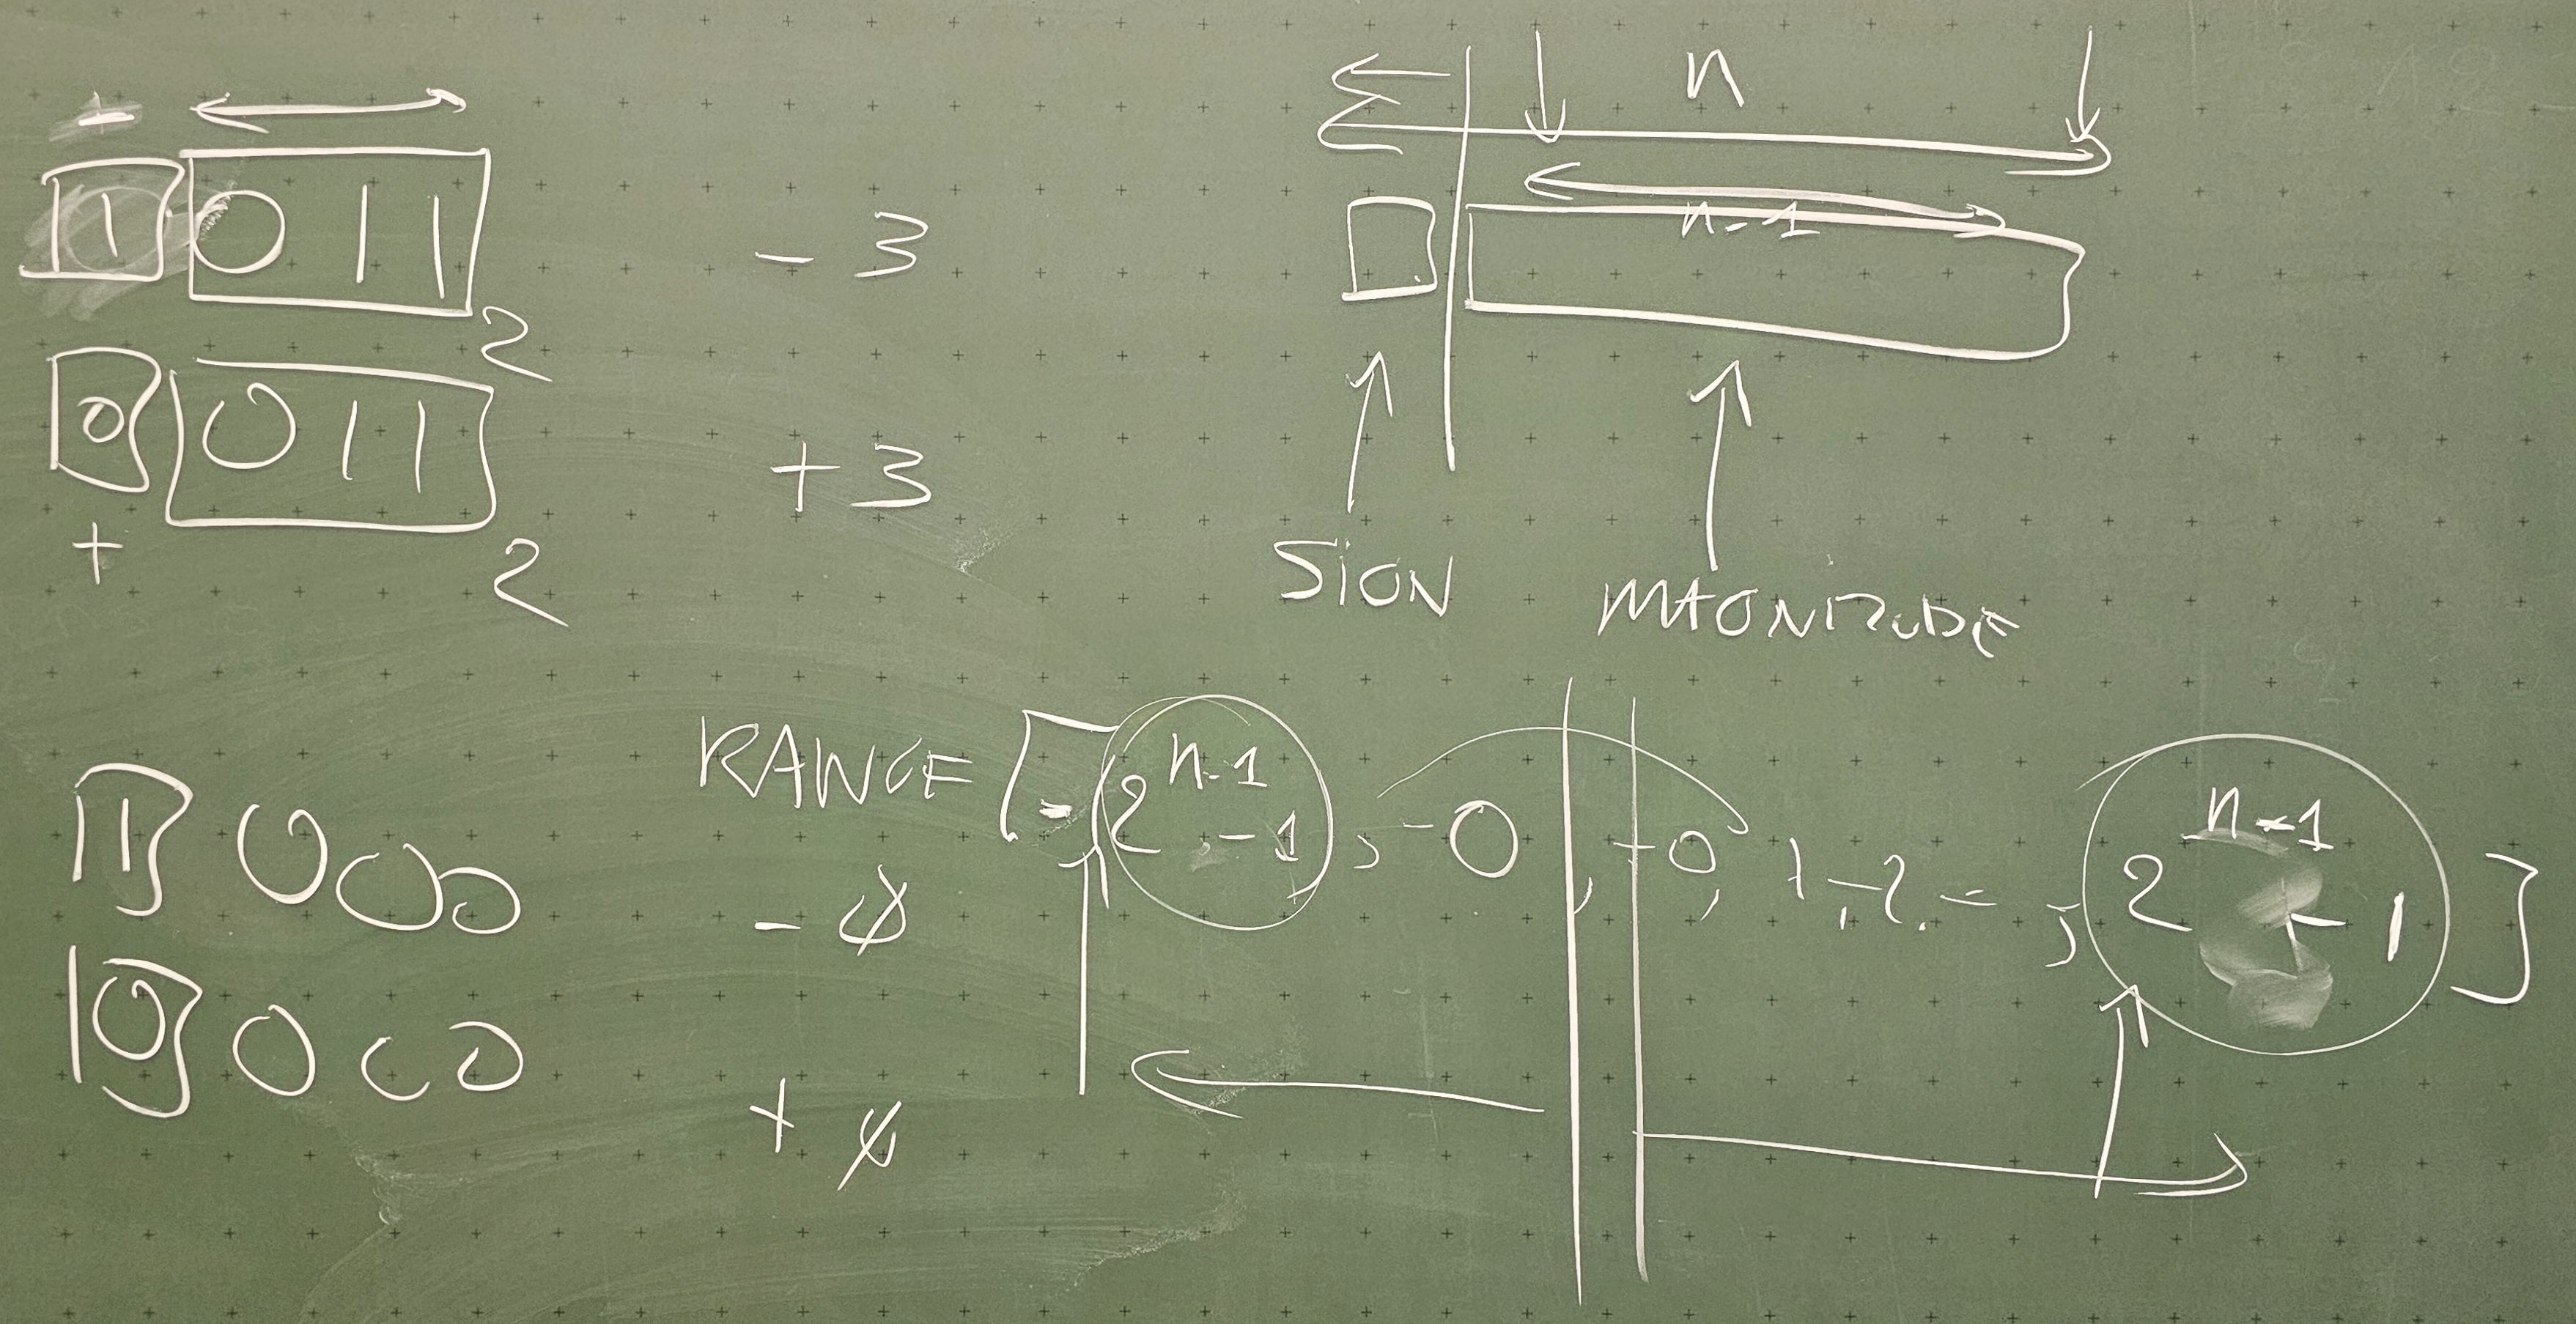 -
1 011 2 - 3
0 011 2 + 3
+
n
n-1
SIGN MAGNITUDE
1 000 - 0
0 000 + 0
RANGE [-(2^n-1 - 1), -0, +0, 1, 2, 2^n-1 - 1]